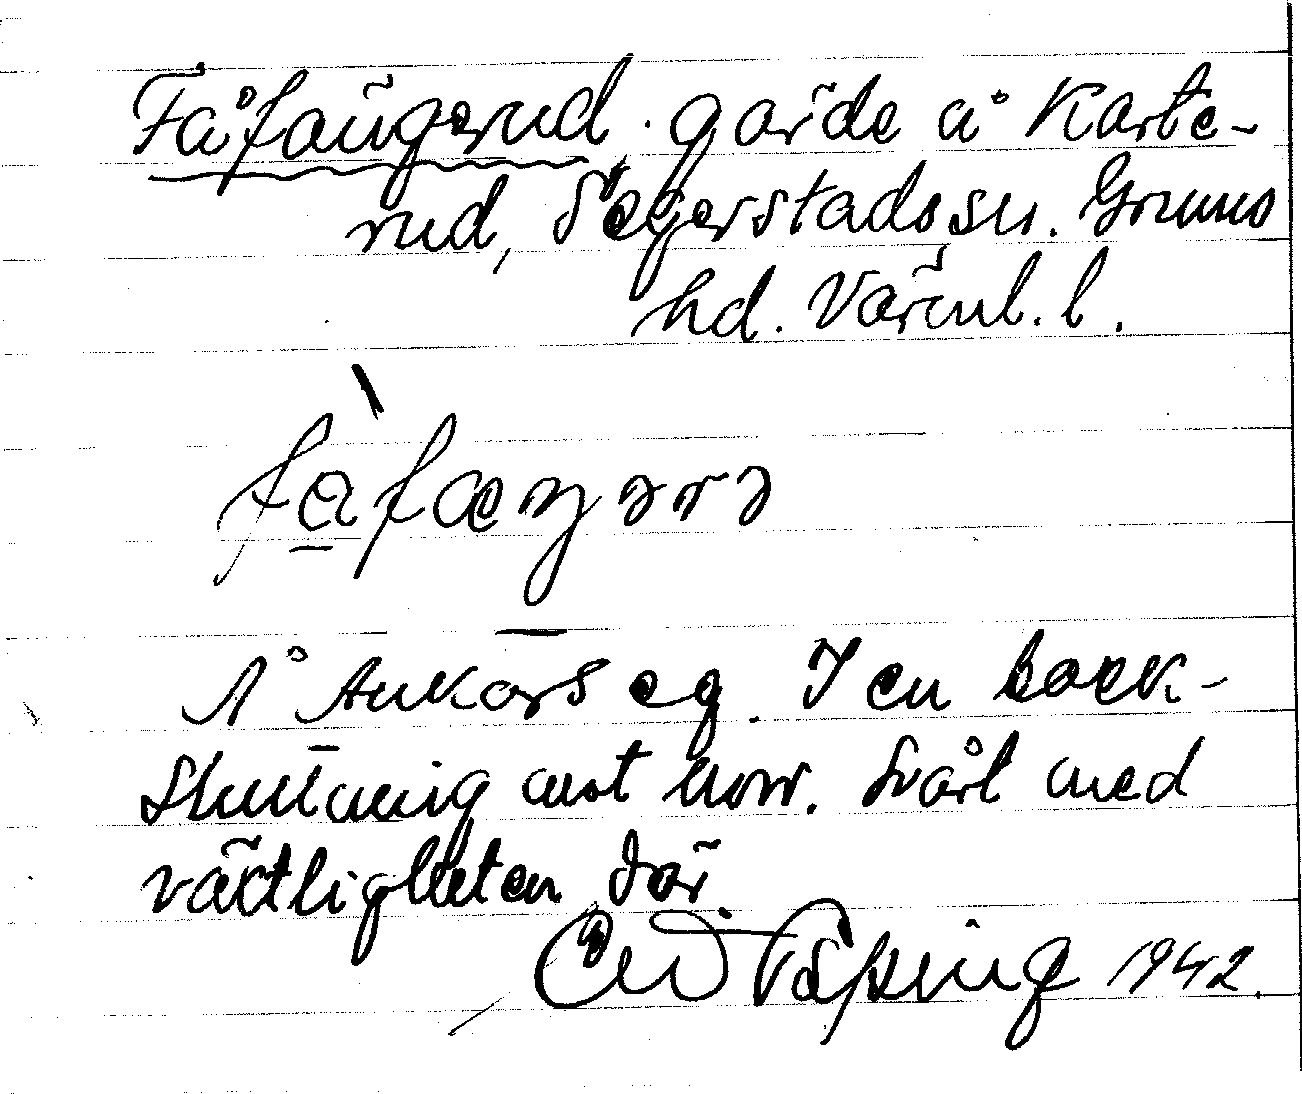 Fåfängerud. gärde å Karte-
rud, Segerstads sn. Grums
hd. Värml. l.
fàfæŋərə
Å Ankars eg. I en back-
sluttning mot norr. Svårt med
växtligheten där.
1942.